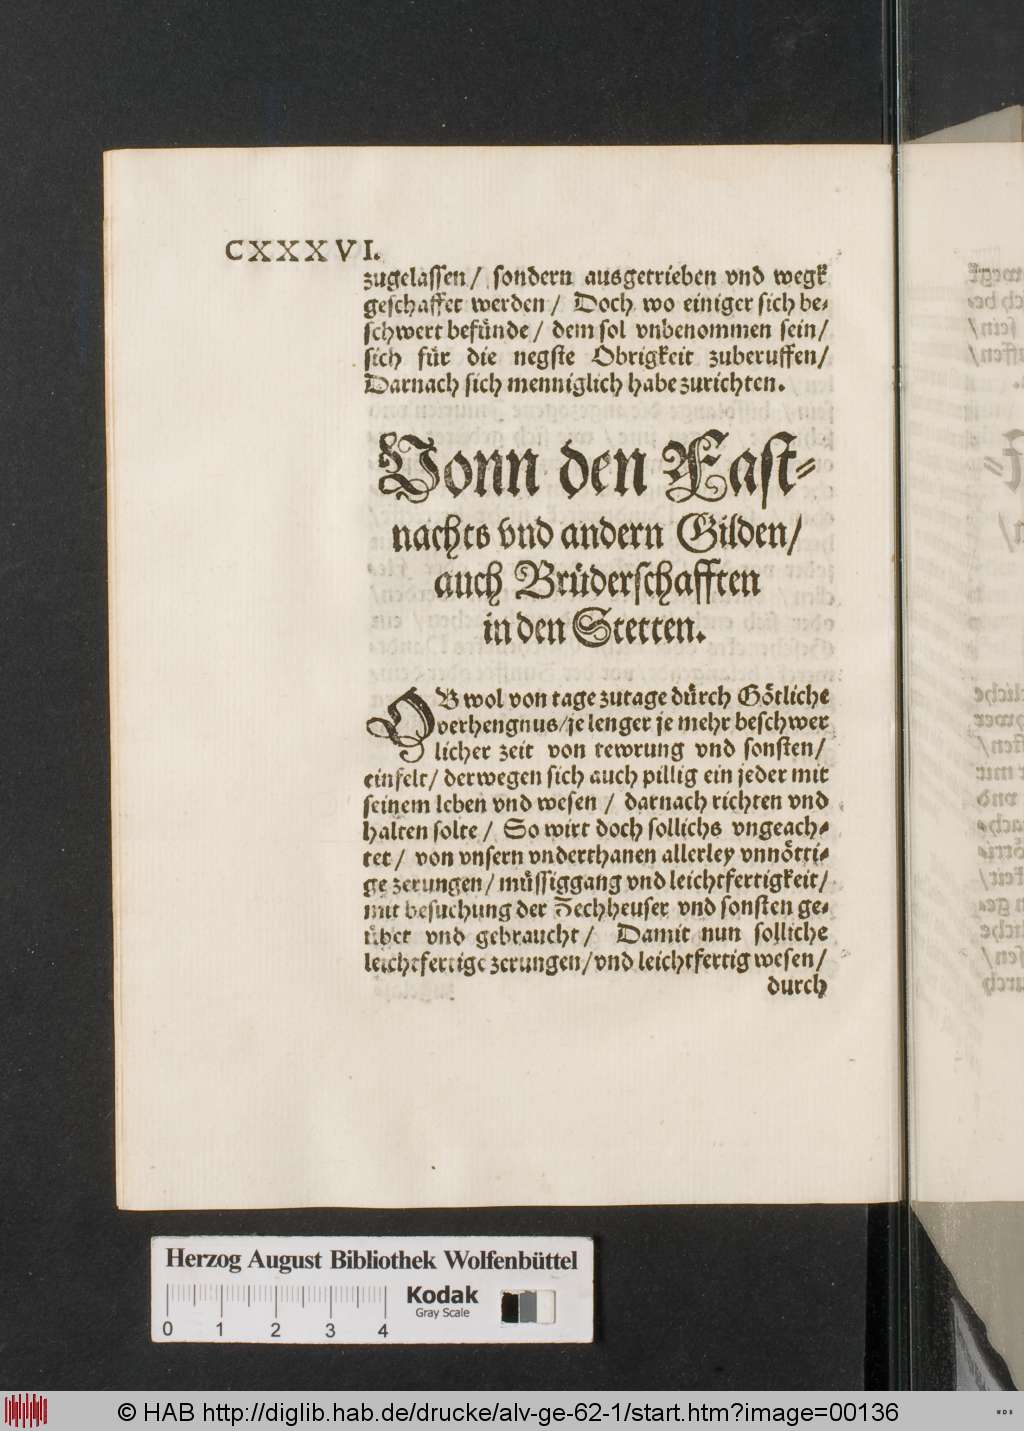 CXXXVI.
zugelassen/ sondern ausgetrieben vnd wegk
geschaffet werden/ Doch wo einiger sich be-
schwert befünde/ dem sol vnbenommen sein/
sich für die negste Obrigkeit zuberuffen/
Darnach sich menniglich habe zurichten.
Vonn den Fast-
nachts vnd andern Gilden/
auch Brüderschafften
in den Stetten.
OB wol von tage zutage dürch Götliche
verhengnus/je lenger je mehr beschwer
licher zeit von tewrung vnd sonsten/
einfelt/ derwegen sich auch pillig ein jeder mit
seinem leben vnd wesen / darnach richten vnd
halten solte/ So wirt doch sollichs vngeach-
tet/ von vnsern vnderthanen allerley vnnötti-
ge zerungen/ müssiggang vnd leichtfertigkeit/
mit besuchung der Zechheuser vnd sonsten ge-
übet vnd gebraucht/ Damit nun solliche
leichtfertige zerungen/vnd leichtfertig wesen/
durch
Herzog August Bibliothek Wolfenbüttel
Kodak
Gray Scale
0 1 2 3 4
© HAB http://diglib.hab.de/drucke/alv-ge-62-1/start.htm?image=00136